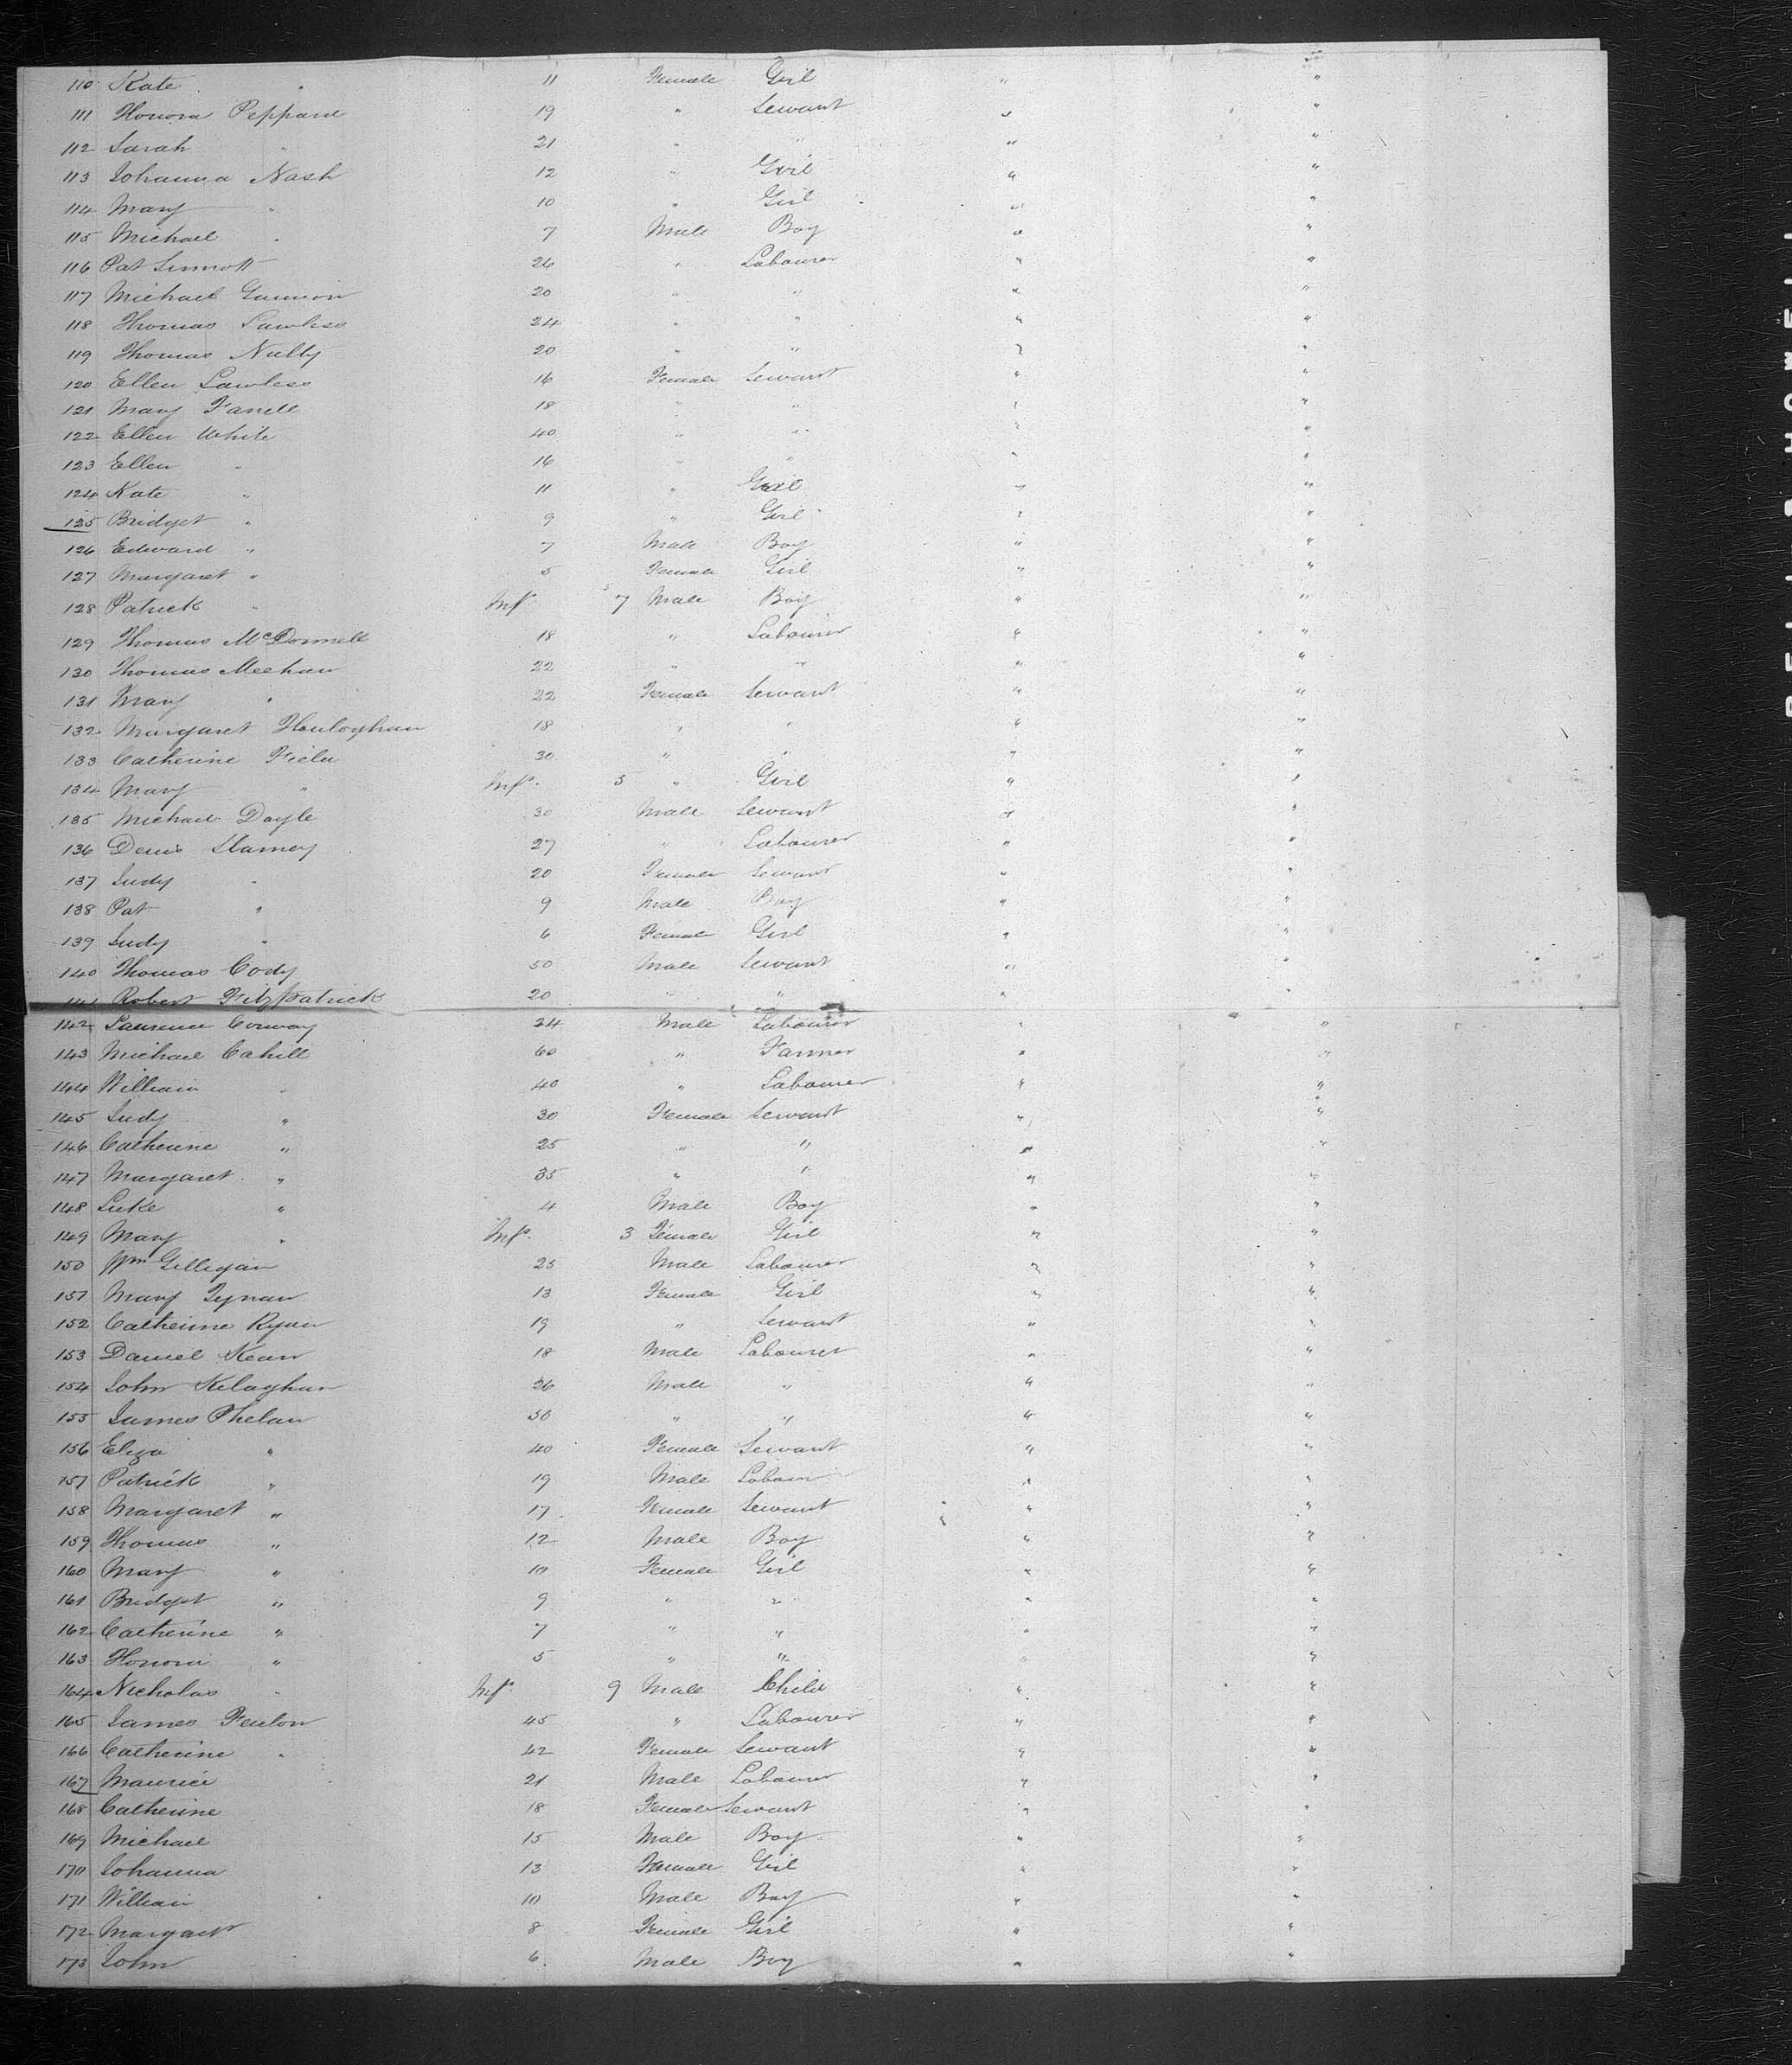 110 Kate " 11 Female Girl " "
111 Honora Peppard 19 " Servant " "
112 Sarah " 21 " " " "
113 Johanna Nash 12 " Girl " "
114 Mary " 10 " Girl " "
115 Michael " 7 Male Boy " "
116 Pat Sinnott 24 " Labourer " "
117 Michael Gannon 20 " " " "
118 Thomas Lawless 24 " " " "
119 Thomas Nulty 20 " " " "
120 Ellen Lawless 16 Female Servant " "
121 Mary Farrell 18 " " " "
122 Ellen White 40 " " " "
123 Ellen " 16 " " " "
124 Kate " 11 " Girl " "
125 Bridget " 9 " Girl " "
126 Edward " 7 Male Boy " "
127 Margaret " 5 Female Girl " "
128 Patrick " Inft 7 Male Boy " "
129 Thomas McDonnell 18 " Labourer " "
130 Thomas Meehan 22 " " " "
131 Mary " 22 Female Servant " "
132 Margaret 18 " " " "
133 Catherine Field 30 " " " "
134 Mary " Inft. 5 " Girl " "
135 Michael Doyle 30 Male Servant " "
136 Denis 27 " Labourer " "
137 Judy " 20 Female Servant " "
138 Pat " 9 Male Boy " "
139 Judy " 6 Female Girl " "
140 Thomas Cody 50 Male Servant " "
141 Robert Fitzpatrick 20 " " " "
142 Laurence Conway 24 Male Labourer " "
143 Michael Cahill 60 " Farmer " "
144 William " 40 " Labourer " "
145 Judy " 30 Female Servant " "
146 Catherine " 25 " " " "
147 Margaret " 35 " " " "
148 Luke " 4 Male Boy " "
149 Mary " Inft. 3 Female Girl " "
150 Wm Gilligan 25 Male Labourer " "
151 Mary Tynan 13 Female Girl " "
152 Catherine Ryan 19 " Servant " "
153 Daniel Kean 18 Male Labourer " "
154 John Kilaghan 26 Male " " "
155 James Phelan 50 " " " "
156 Eliza " 40 Female Servant " "
157 Patrick " 19 Male Labour " "
158 Margaret " 17 Female Servant " "
159 Thomas " 12 Male Boy " "
160 Mary " 10 Female Girl " "
161 Bridget " 9 " " " "
162 Catherine " 7 " " " "
163 Honora " 5 " " " "
164 Nicholas " Inft. 9 Male Child " "
165 James Fenlon 45 " Labourer " "
166 Catherine " 42 Female Servant " "
167 Maurice 21 Male Labourer " "
168 Catherine 18 Female Servant " "
169 Michael 15 Male Boy " "
170 Johanna 13 Female Girl " "
171 William 10 Male Boy " "
172 Margaret 8 Female Girl " "
173 John 6 Male Boy " "